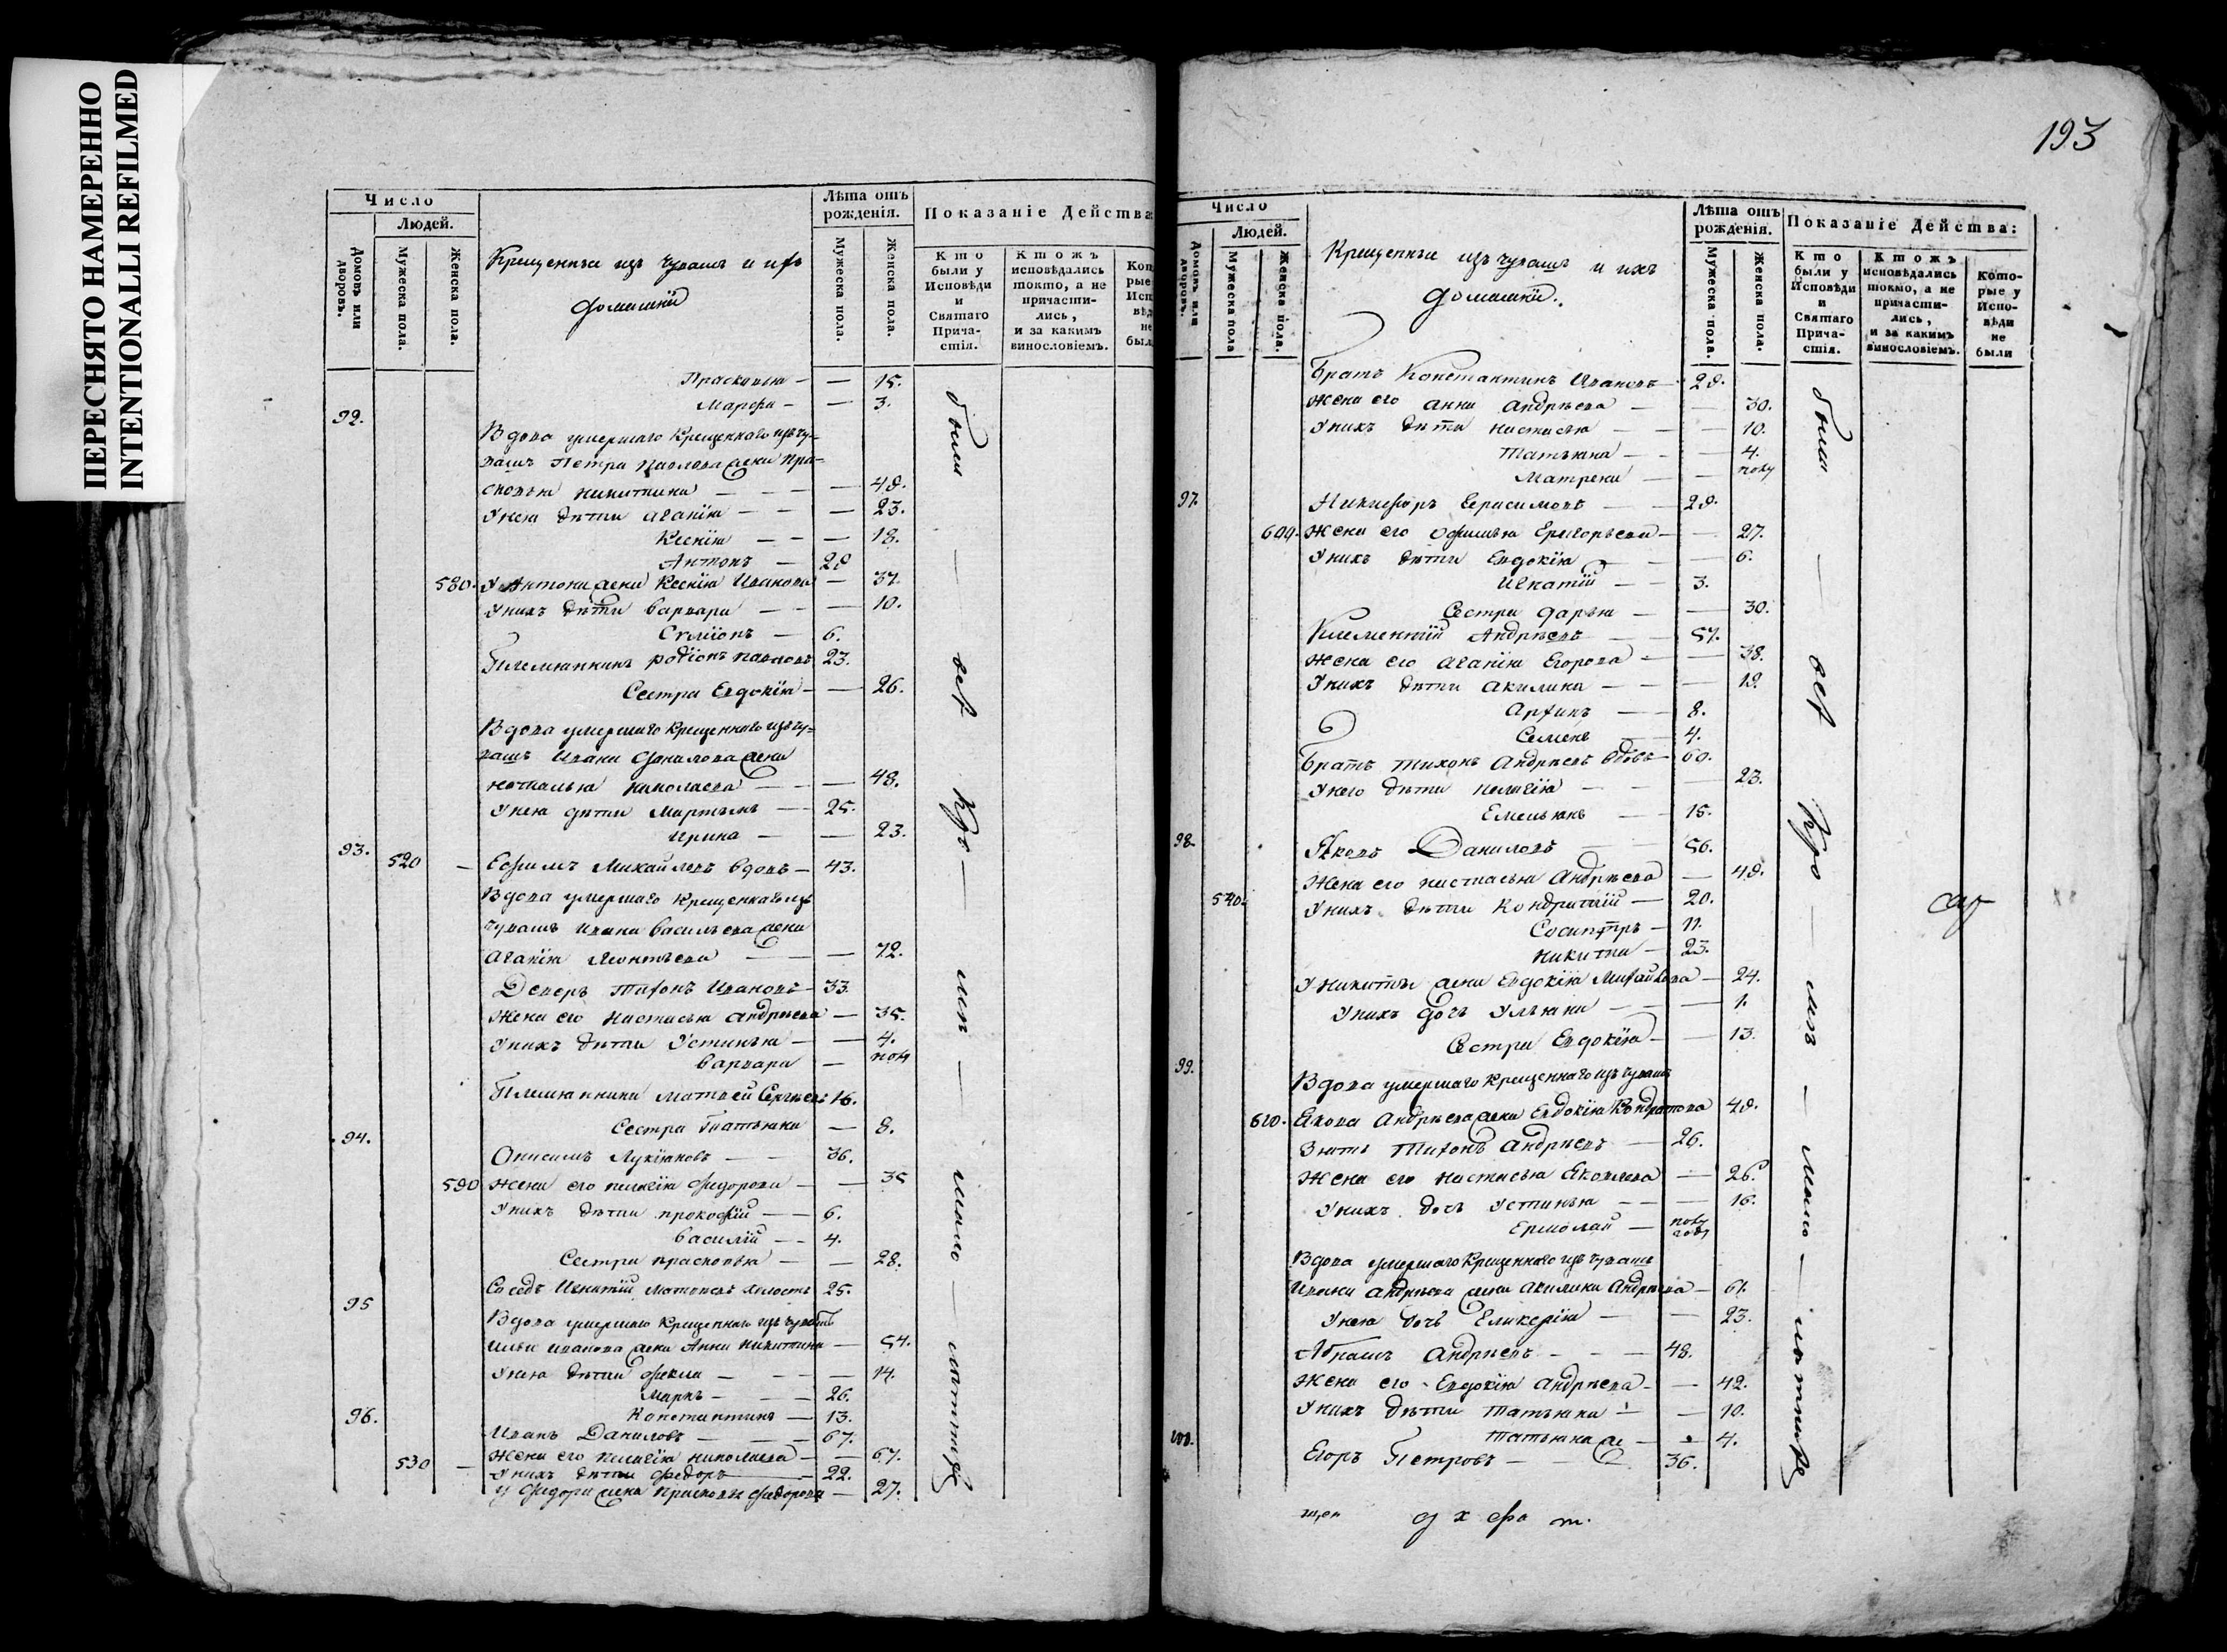 ПЕРЕСНЯТО НАМЕРЕННО
INTENTIONALLI REFILMED
Число
Людей.
Домовъ или дворовъ.
Мужеска пола.
Женска пола.
Крещенныи изъ Чувашъ и ихъ
домашніи
Лѣта отъ рожденія.
Мужеска пола.
Женска пола.
Показаніе Действа:
Кто были у Исповѣди и Святаго Прича-стія.
Ктожъ исповѣдались токмо, а не причасти-лись, и за какимъ винословіемъ.
Прасковья — — 15.
Марфа — — 3.
92.
Вдова умершаго Крещеннаго изъ чу=
вашъ Петра Павлова жена Пра=
сковья Никитина — — — 48.
У нея дѣти Агапія — — — 23.
Ксенія — — — 18.
Антонъ — 28
580. У Антона жена Ксенія Иванова — 37.
У нихъ дѣти Варвара — — — 10.
Симіонъ — 6.
Племянникъ Родіонъ Павловъ 23.
Сестра Евдокія — — 26.
Вдова умершаго Крещеннаго изъ чу=
вашъ Ивана Данилова жена
Наталья Николаева — — 48.
У нея дѣти Мартынъ — 25.
Ирина — — 23.
93. 520 — Ефимъ Михайловъ вдовъ — 43.
Вдова умершаго Крещеннаго изъ
Чувашъ Ивана Васильева жена
Агапія Леонтьева — — 72.
Деверь Тихонъ Ивановъ — 33.
Жена его Настасья Андрѣева — 35.
У нихъ дѣти Устинья — — 4.
Варвара — полу
Племянники Матвей Сергѣевъ 16.
Сестра Татьяна — 8.
94.
Онисимъ Лукіяновъ — — 36.
590 Жена его Пелагія Федорова — — 35
У нихъ дѣти Прокофій — — 6.
Василій — — 4.
Сестра Прасковья — — 28.
Соседъ Игнатій Матвеевъ холостъ 25.
95
Вдова умершаго Крещеннаго изъ Чувашъ
Ильи Иванова жена Анна Никитина — 54.
У нея дѣти Фекла — — — 14.
Маркъ — — — 26.
Константинъ — 13.
96.
Иванъ Даниловъ — — — 67.
530 — Жена его Пелагія Николаева — — 67.
У нихъ дѣти Федоръ — 22.
У Федора жена Прасковья Федорова — 27.
были — всѣ — Кро — мѣ — мало — лѣтныхъ
193
Число
Людей.
Домовъ или дворовъ.
Мужеска пола
Женска пола.
Крещенныи изъ Чувашъ и ихъ
домашніи.
Лѣта отъ рожденія.
Мужеска пола.
Женска пола.
Показаніе Действа:
Кто были у Исповѣди и Святаго Прича-стія.
Ктожъ исповѣдались токмо, а не причасти-лись, и за какимъ винословіемъ.
Кото-рые у Испо-вѣди не были
Братъ Константинъ Ивановъ — 28.
Жена его Анна Андрѣева — — 30.
У нихъ дѣти Настасья — — — 10.
Татьяна — — — 4.
Матрена — — полу
97. Никифоръ Герасимовъ — 28.
Жена его Офимья Григорьева — — 27.
У нихъ дѣти Евдокія — — 6.
Игнатій — — 3.
Сестра Дарья — — 30.
Климентій Андрѣевъ — — 57.
Жена его Агапія Егорова — — 38.
У нихъ дѣти Акилина — — — 19.
Архипъ — — 8.
Семенъ — — 4.
Братъ Тихонъ Андрѣевъ вдовъ — 60.
У него дѣти Пелагія — — — 23.
Емельянъ — 15.
98. Яковъ Даниловъ — 56.
Жена его Настасья Андрѣева — 48.
540. У нихъ дѣти Кондратій — 20.
Сосипатръ — 11.
Никита — 23.
У Никиты жена Евдокія Михайлова — 24.
У нихъ дочь Ульяна — — 1.
Сестра Евдокія — — 13.
99.
Вдова умершаго Крещеннаго изъ Чувашъ
610. Якова Андрѣева жена Евдокія Кондратова 48.
Зять Тихонъ Андрѣевъ — 26.
Жена его Настасья Яковлева — 26.
У нихъ дочь Устинья — — 16.
Ермолай — полу года
Вдова умершаго Крещеннаго изъ Чувашъ
Ивана Андрѣева жена Акилина Андрѣева — 61.
У нея дочь Гликерія — — 23.
Абрамъ Андрѣевъ — — — 48.
Жена его Евдокія Андрѣева — — 42.
У нихъ дѣти Татьяна — — 10.
Татьяна же — — 4.
100.
Егоръ Петровъ — — 36.
были — всѣ — Кро — мѣ — мало — лѣтныхъ